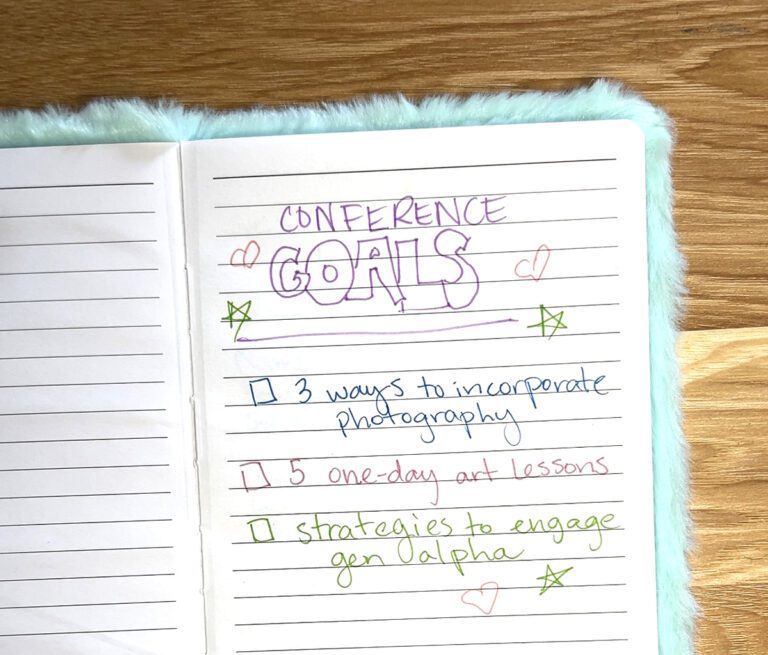 CONFERENCE
GOALS
3 ways to incorporate
photography
5 one-day art lessons
strategies to engage
gen alpha